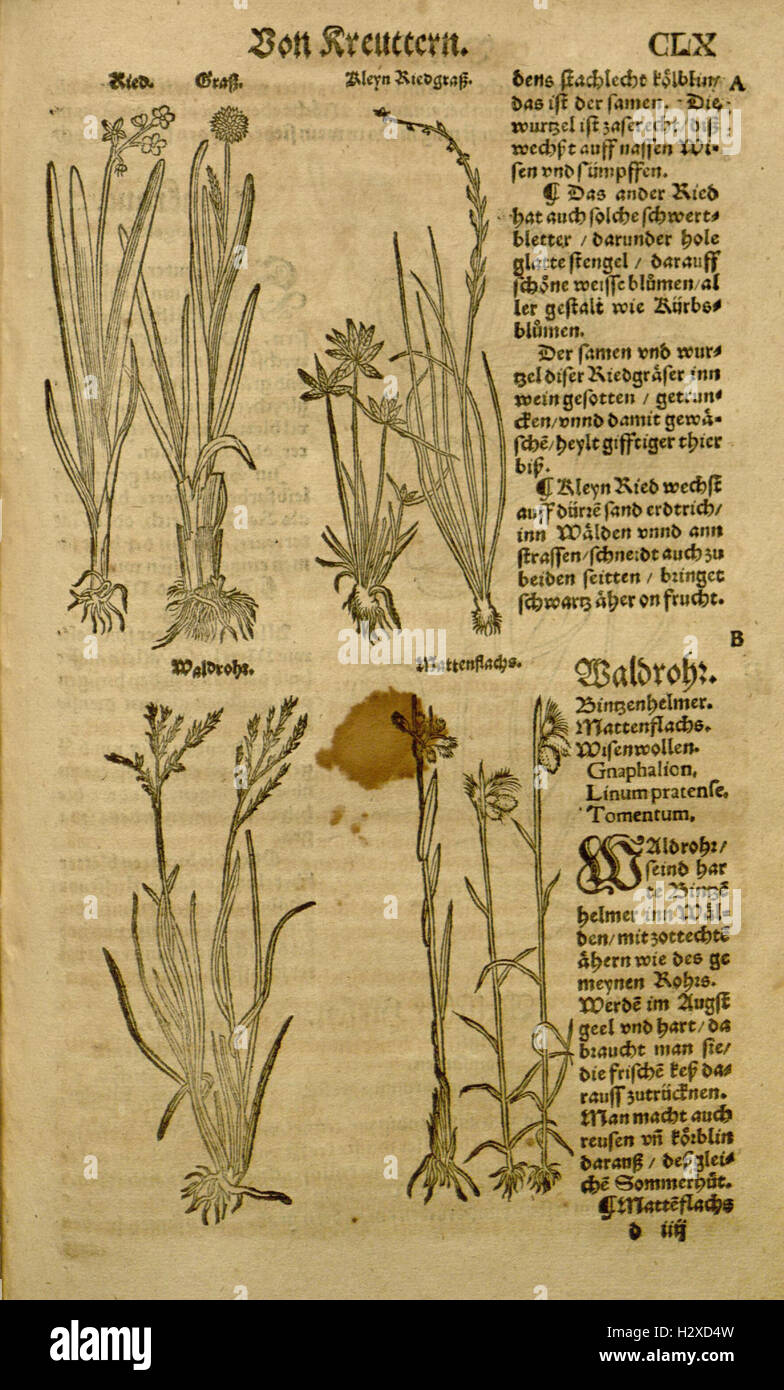 Von Kreuttern.
CLX
Ried. Graß.
Kleyn Riedgraß.
dens stachlecht kölblin/
A
das ist der samen. Die
wurtzel ist zaserecht/ diß
wechßt auff nassen Wi-
sen vnd sümpffen.
¶ Das ander Ried
hat auch solche schwert-
bletter / darunder hole
glatte stengel / darauff
schöne weisse blůmen/ al
ler gestalt wie Kürbs-
blůmen.
Der samen vnd wur-
tzel diser Riedgräser inn
wein gesotten / getrun-
cken/ vnnd damit gewä-
schē/ heylt gifftiger thier
biß.
¶ Kleyn Ried wechst
auff dürrē sand erdtrich/
inn Wälden vnnd ann
strassen/ schneidt auch zu
beiden seitten / bringet
schwartz äher on frucht.
B
Waldrohr.
Mattenflachs.
Waldrohr.
Bintzenhelmer.
Mattenflachs.
Wisenwollen.
Gnaphalion,
Linum pratense,
Tomentum,
WAldrohr/
seind har
te Bintzē
helmer inn Wäl-
den/ mit zottechtē
ähern wie des ge
meynen Rohrs.
Werdē im Augst
geel vnd hart/ da
braucht man sie/
die frischē keß da-
rauff zutrücknen.
Man macht auch
reusen vñ körblin
darauß / desglei-
chē Sommerhůt.
¶ Mattēflachs
d iiij
alamy
a
alamy
Image ID: H2XD4W
www.alamy.com